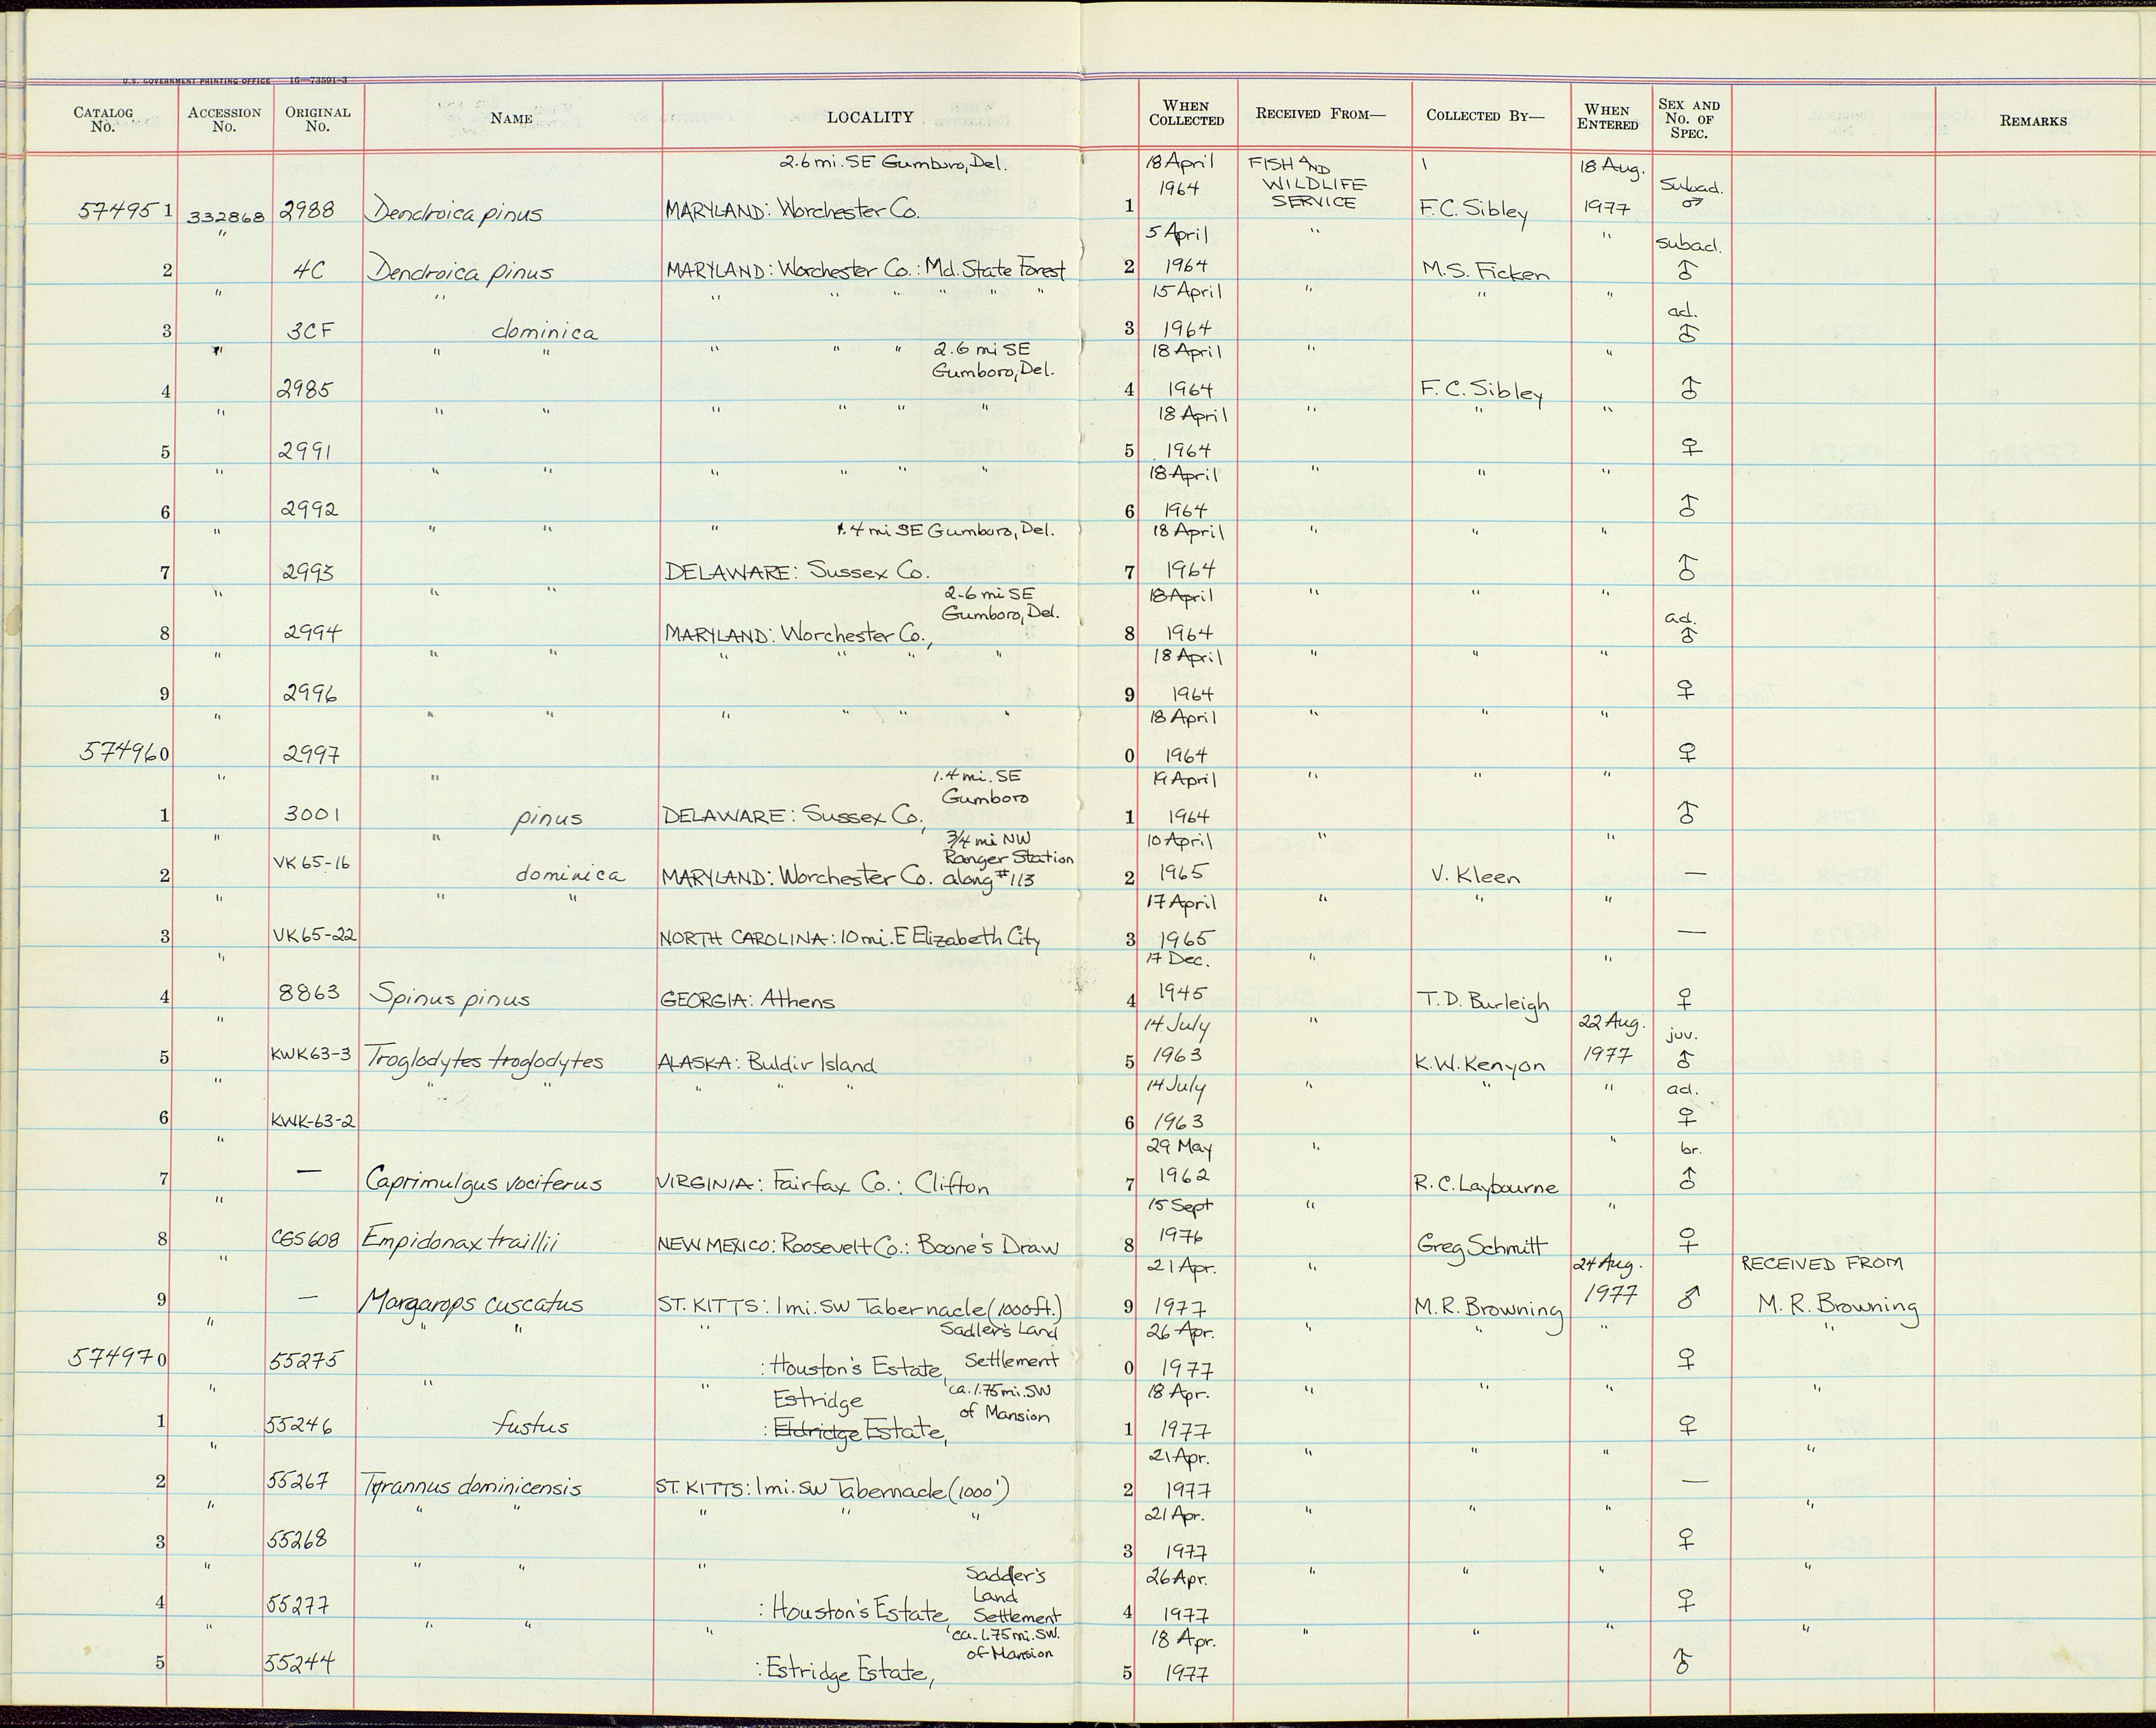 U.S. GOVERNMENT PRINTING OFFICE 16—73591-3
CATALOG No. ACCESSION No. ORIGINAL No. NAME LOCALITY WHEN COLLECTED RECEIVED FROM— COLLECTED BY— WHEN ENTERED SEX AND No. OF SPEC. REMARKS
2.6 mi. SE Gumboro, Del. 18 April FISH AND 1 18 Aug.
1964 WILDLIFE Subad.
574951 332868 2988 Dendroica pinus MARYLAND: Worchester Co. 1 SERVICE F.C. Sibley 1977 ♂
" 5 April " " subad.
2 4C Dendroica pinus MARYLAND: Worchester Co.: Md. State Forest 2 1964 M.S. Ficken ♂
" " " " " " " " 15 April " " " ad.
3 3CF dominica 3 1964 ♂
" " " " " " 2.6 mi SE 18 April " "
Gumboro, Del.
4 2985 4 1964 F.C. Sibley ♂
" " " " " " " 18 April " " "
5 2991 5 1964 ♀
" " " " " " " 18 April " " "
6 2992 6 1964 ♂
" " " " 1.4 mi SE Gumboro, Del. 18 April " " "
7 2993 DELAWARE: Sussex Co. 7 1964 ♂
" " " 2.6 mi SE 18 April " " "
Gumboro, Del. ad.
8 2994 MARYLAND: Worchester Co., 8 1964 ♂
" " " " " " " 18 April " " "
9 2996 9 1964 ♀
" " " " " " " 18 April " " "
574960 2997 0 1964 ♀
" " 1.4 mi. SE 19 April " " "
Gumboro
1 3001 pinus DELAWARE: Sussex Co., 1 1964 ♂
" " 3/4 mi NW 10 April " "
Ranger Station
2 VK 65-16 dominica MARYLAND: Worchester Co. along #113 2 1965 V. Kleen —
" " " 17 April " " "
3 VK65-22 NORTH CAROLINA: 10 mi. E Elizabeth City 3 1965 —
" 17 Dec. " "
4 8863 Spinus pinus GEORGIA: Athens 4 1945 T.D. Burleigh ♀
" 14 July " 22 Aug. juv.
5 KWK63-3 Troglodytes troglodytes ALASKA: Buldir Island 5 1963 K.W. Kenyon 1977 ♂
" " " " " " 14 July " " " ad.
6 KWK-63-2 6 1963 ♀
" 29 May " " br.
7 — Caprimulgus vociferus VIRGINIA: Fairfax Co.: Clifton 7 1962 R.C. Laybourne ♂
" 15 Sept " "
8 CGS 608 Empidonax traillii NEW MEXICO: Roosevelt Co.: Boone's Draw 8 1976 Greg Schmitt ♀
" 21 Apr. " 24 Aug. RECEIVED FROM
9 — Margarops cuscatus ST. KITTS: 1 mi. SW Tabernacle (1000 ft.) 9 1977 M.R. Browning 1977 ♂ M. R. Browning
" " " " Sadler's Land 26 Apr. " " " "
574970 55275 : Houston's Estate, Settlement 0 1977 ♀
" " " ca. 1.75 mi. SW 18 Apr. " " " "
Estridge of Mansion
1 55246 fustus : Eldridge Estate, 1 1977 ♀
" 21 Apr. " " " "
2 55267 Tyrannus dominicensis ST. KITTS: 1 mi. SW Tabernacle (1000') 2 1977 —
" " " " " " 21 Apr. " " " "
3 55268 3 1977 ♀
" " " " Sadder's 26 Apr. " " " "
Land
4 55277 : Houston's Estate, Settlement 4 1977 ♀
" " " " ca. 1.75 mi. SW. 18 Apr. " " " "
of Mansion
5 55244 : Estridge Estate, 5 1977 ♂